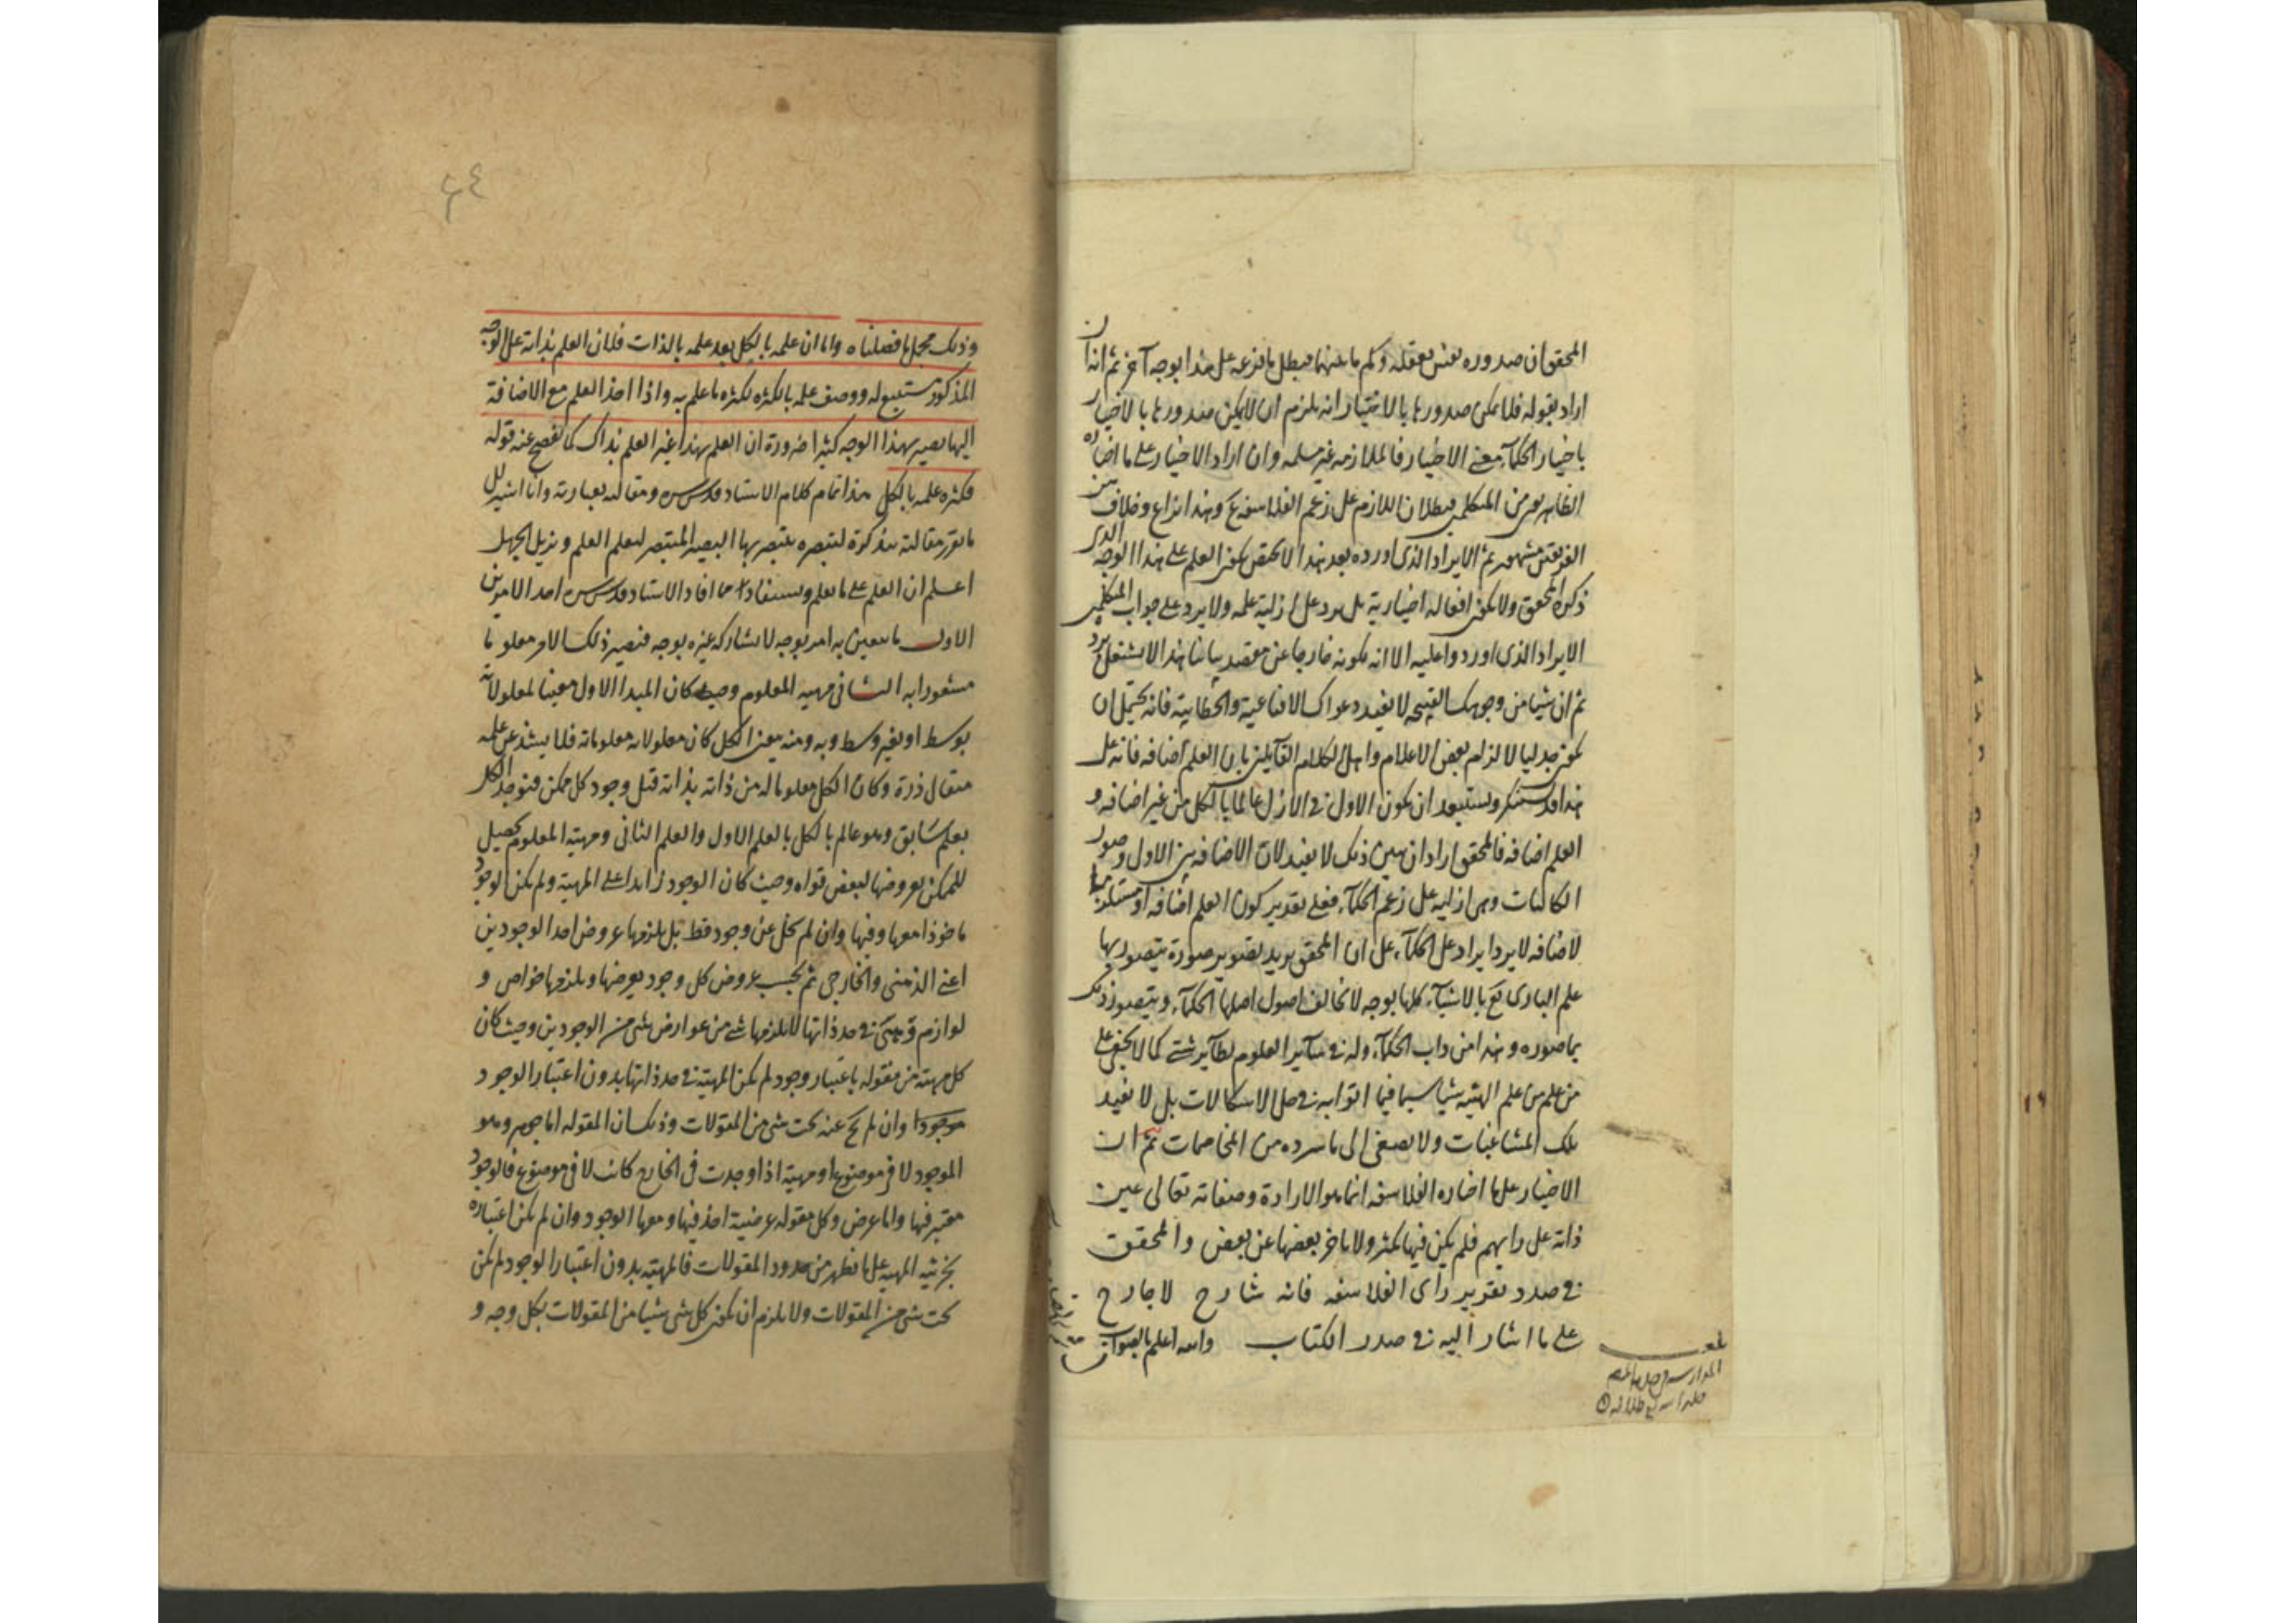 المحقق ان صدوره نفس تعقله وكم ما بينهما فبطل ما فرعه على هذا بوجه آخر ثم انه ان
اراد بقوله فلا يمكن صدورها بالاختيار انه يلزم ان لا يمكن صدورها بالاختيار
باختيار الحكمآء معنى الاختيار فالملازمة غير مسلمة وان اراد الاختيار على ما اختاره
الظاهريون من المتكلمين فبطلان اللازم على زعم الفلاسفة مم وهذا نزاع وخلاف من
الفريقين مشهور ثم الايراد الذى اورده بعد هذا لا يختص بكون العلم على هذا الوجه الذى
ذكره المحقق ولا بكون افعاله اختيارية بل يرد على ازلية علمه ولا يرد على جواب المتكلمين
الايراد الذى اوردوا عليه الا انه لكونه خارجا عن مقصد بياننا هذا لا نشتغل برد
ثم ان شيئا من وجوهك القبيحه لا يفيد دعواك الاقناعية والخطابية فانه يحتمل ان
يكون جدليا لالزام بعض الاعلام واهل الكلام القآيلين بان العلم اضافه فانه على
هذا قد يستنكر ويستبعد ان يكون الاول فى الازل عالما بالكل من غير اضافه و
العلم اضافه فالمحقق اراد ان يبين ذلك لا يفيد لان الاضافه بين الاول وصور
الكائنات وهى ازلية على زعم الحكمآء فعلى تقدير كون العلم اضافه او مستلزما
لاضافه لا يرد ايراد على الحكمآء على ان المحقق يريد تصوير صورة يتصور بها
علم البارى تع بالاشيآء كلها بوجه لا تخالف اصول اصلها الحكمآء ويتصور ذلك
بما صوره وهذا من داب الحكمآء وله فى سآير العلوم نظآير شتى كما لا يخفى على
من علم من علم الهيئه شيئا سيما فيما اتوا به فى حل الاشكالات بل لا يفيد
تلك المشاغبات ولا يصغى الى ما سرده من المخاصمات ثم ان
الاختيار على ما اختاره الفلاسفه انما هو الارادة وصفاته تعالى عين
ذاته على رايهم فلم يكن فيها تكثر ولا تاخر بعضها عن بعض والمحقق
فى صدد تقرير راى الفلاسفه فانه شارح لا جارح
على ما اشار اليه فى صدر الكتاب والله اعلم بالصواب
بلغ
٤٦
وذلك مجمل ما فصلناه واما ان علمه بالكل بعد علمه بالذات فلان العلم بذاته على الوجه
المذكور مستتبع له ووصف علمه بالكثره لكثره ما علم به واذا اخذ العلم مع الاضافة
اليها يصير بهذا الوجه كثيرا ضرورة ان العلم بهذا غير العلم بذاك كما يفصح عنه قوله
فكثره علمه بالكل هذا تمام كلام الاستاد قدس سره ومقالته بعبارته وانا اشير لك
ما يقرر مقالته تذكرة لتبصره يتبصر بها البصير المتبصر ليعلم العلم ويزيل الجهل
اعلم ان العلم على ما يعلم ويستفاد مما افاد الاستاد قدس سره احد الامرين
الاول ما يتعين به امر بوجه لا يشاركه غيره بوجه فيصير ذلك الامر معلوما
مشعورا به الثانى مهية المعلوم وحيث كان المبدا الاول معينا لمعلولاته
بوسط او بغير وسط وبه ومنه تعين الكل كان معلولاته معلوماته فلا يشذ عن علمه
مثقال ذرة وكان الكل معلوما له من ذاته بذاته قبل وجود كل ممكن فنوجد الكل
بعلم سابق وهو عالم بالكل بالعلم الاول والعلم الثانى ومهية المعلوم يحصل
للممكن بعروضها لبعض قواه وحيث كان الوجود زايدا على المهية ولم يكن الوجود
ماخوذا معها وفيها وان لم تخل عن وجود قط بل يلزمها عروض احد الوجودين
اعنى الذهنى والخارجى ثم بحسب عروض كل وجود يعرضها ويلزمها خواص و
لوازم فهى فى حد ذاتها لا يلزمها شئ من عوارض شئ من الوجودين وحيث كان
كل مهية من مقوله باعتبار وجود لم يكن المهية فى حد ذاتها بدون اعتبار الوجود
موجودا وان لم تخ عنه تحت شئ من المقولات وذلك ان المقوله اما جوهر وهو
الموجود لا فى موضوع او مهية اذا وجدت فى الخارج كانت لا فى موضوع فالوجود
معتبر فيها واما عرض وكل مقوله عرضية اخذ فيها ومعها الوجود وان لم يكن اعتباره
بجزئية المهية على ما يظهر من حدود المقولات فالمهية بدون اعتبار الوجود لم يكن
تحت شئ من المقولات ولا يلزم ان يكون كل شئ شيئا من المقولات بكل وجه و